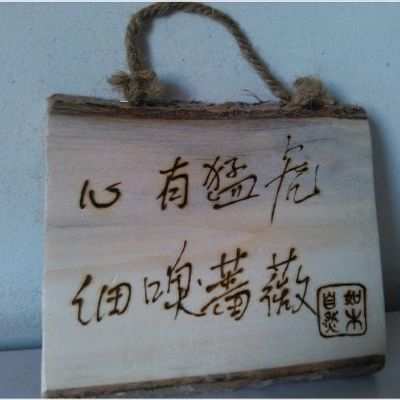 心有猛虎
细嗅薔薇
如木
自然